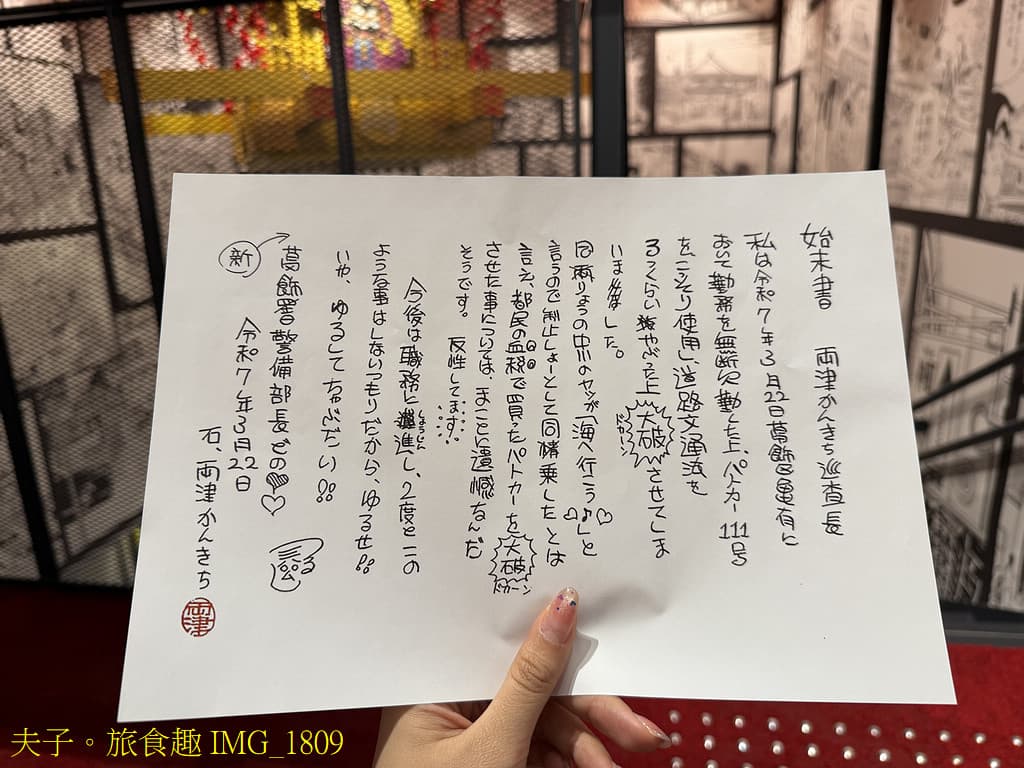 始末書　両津かんきち巡査長
私は令和7年3月22日葛飾区亀有に
おいて勤務を無断欠勤した上、パトカー111号
をこっそり使用し、道路交通法を
るくらいやぶった上大破させてしま
ドカーン
いました。
同両りょうの中川のヤツが「海へ行こう♪」と
言うので制止しょーとして同情乗したとは
言え、都民の血税で買ったパトカーを大破
ドカーン
させた事については、まことに遺憾なんだ
そうです。　反性してます!
今後は職務に進し、2度とこの
しょうじん
ような事はしないつもりだから、ゆるせ!!
いや、ゆるしてちょうだい!!
新
葛飾署警備部長どの
令和7年3月22日
右、両津かんきち
両津
夫子。旅食趣 IMG_1809